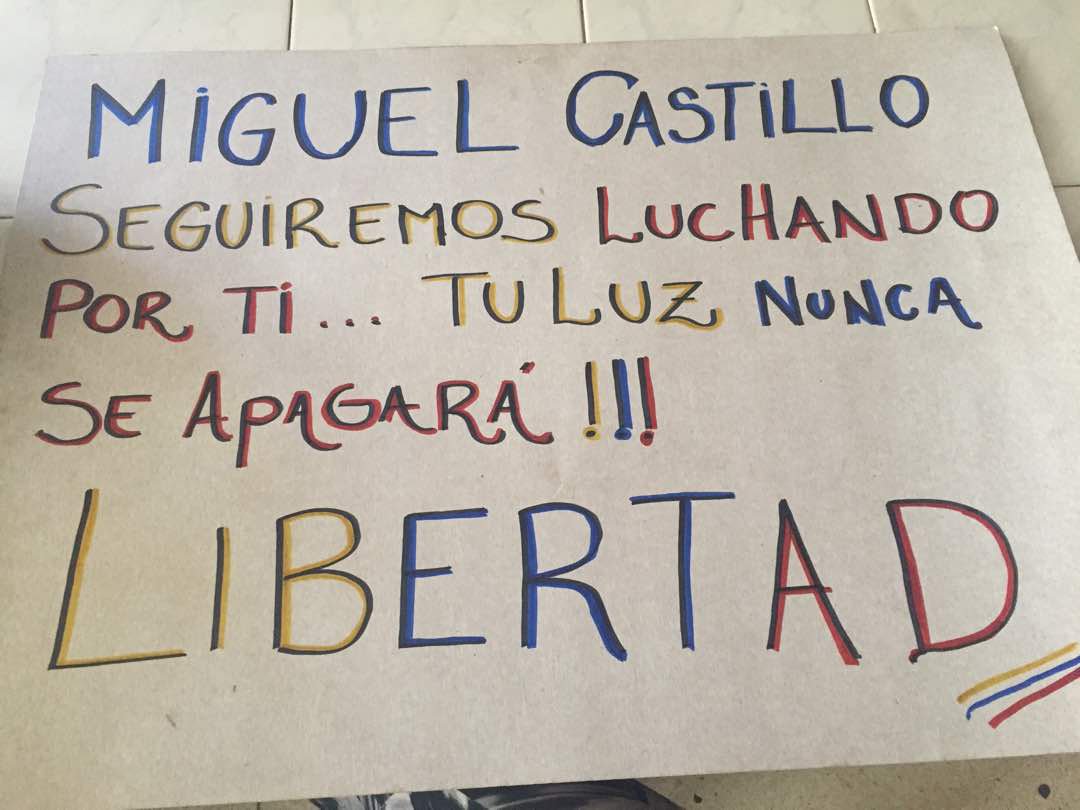 MiGUEL CASTiLLO
SEGUiREMOS LUCHANDO
POR Ti... TU LUZ NUNCA
SE APAGARÁ !!!
LiBERTAD